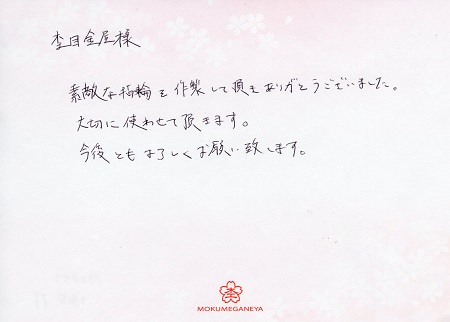 杢目金屋様
素敵な指輪を作製して頂きありがとうございました。
大切に使わせて頂きます。
今後ともよろしくお願い致します。
杢
MOKUMEGANEYA